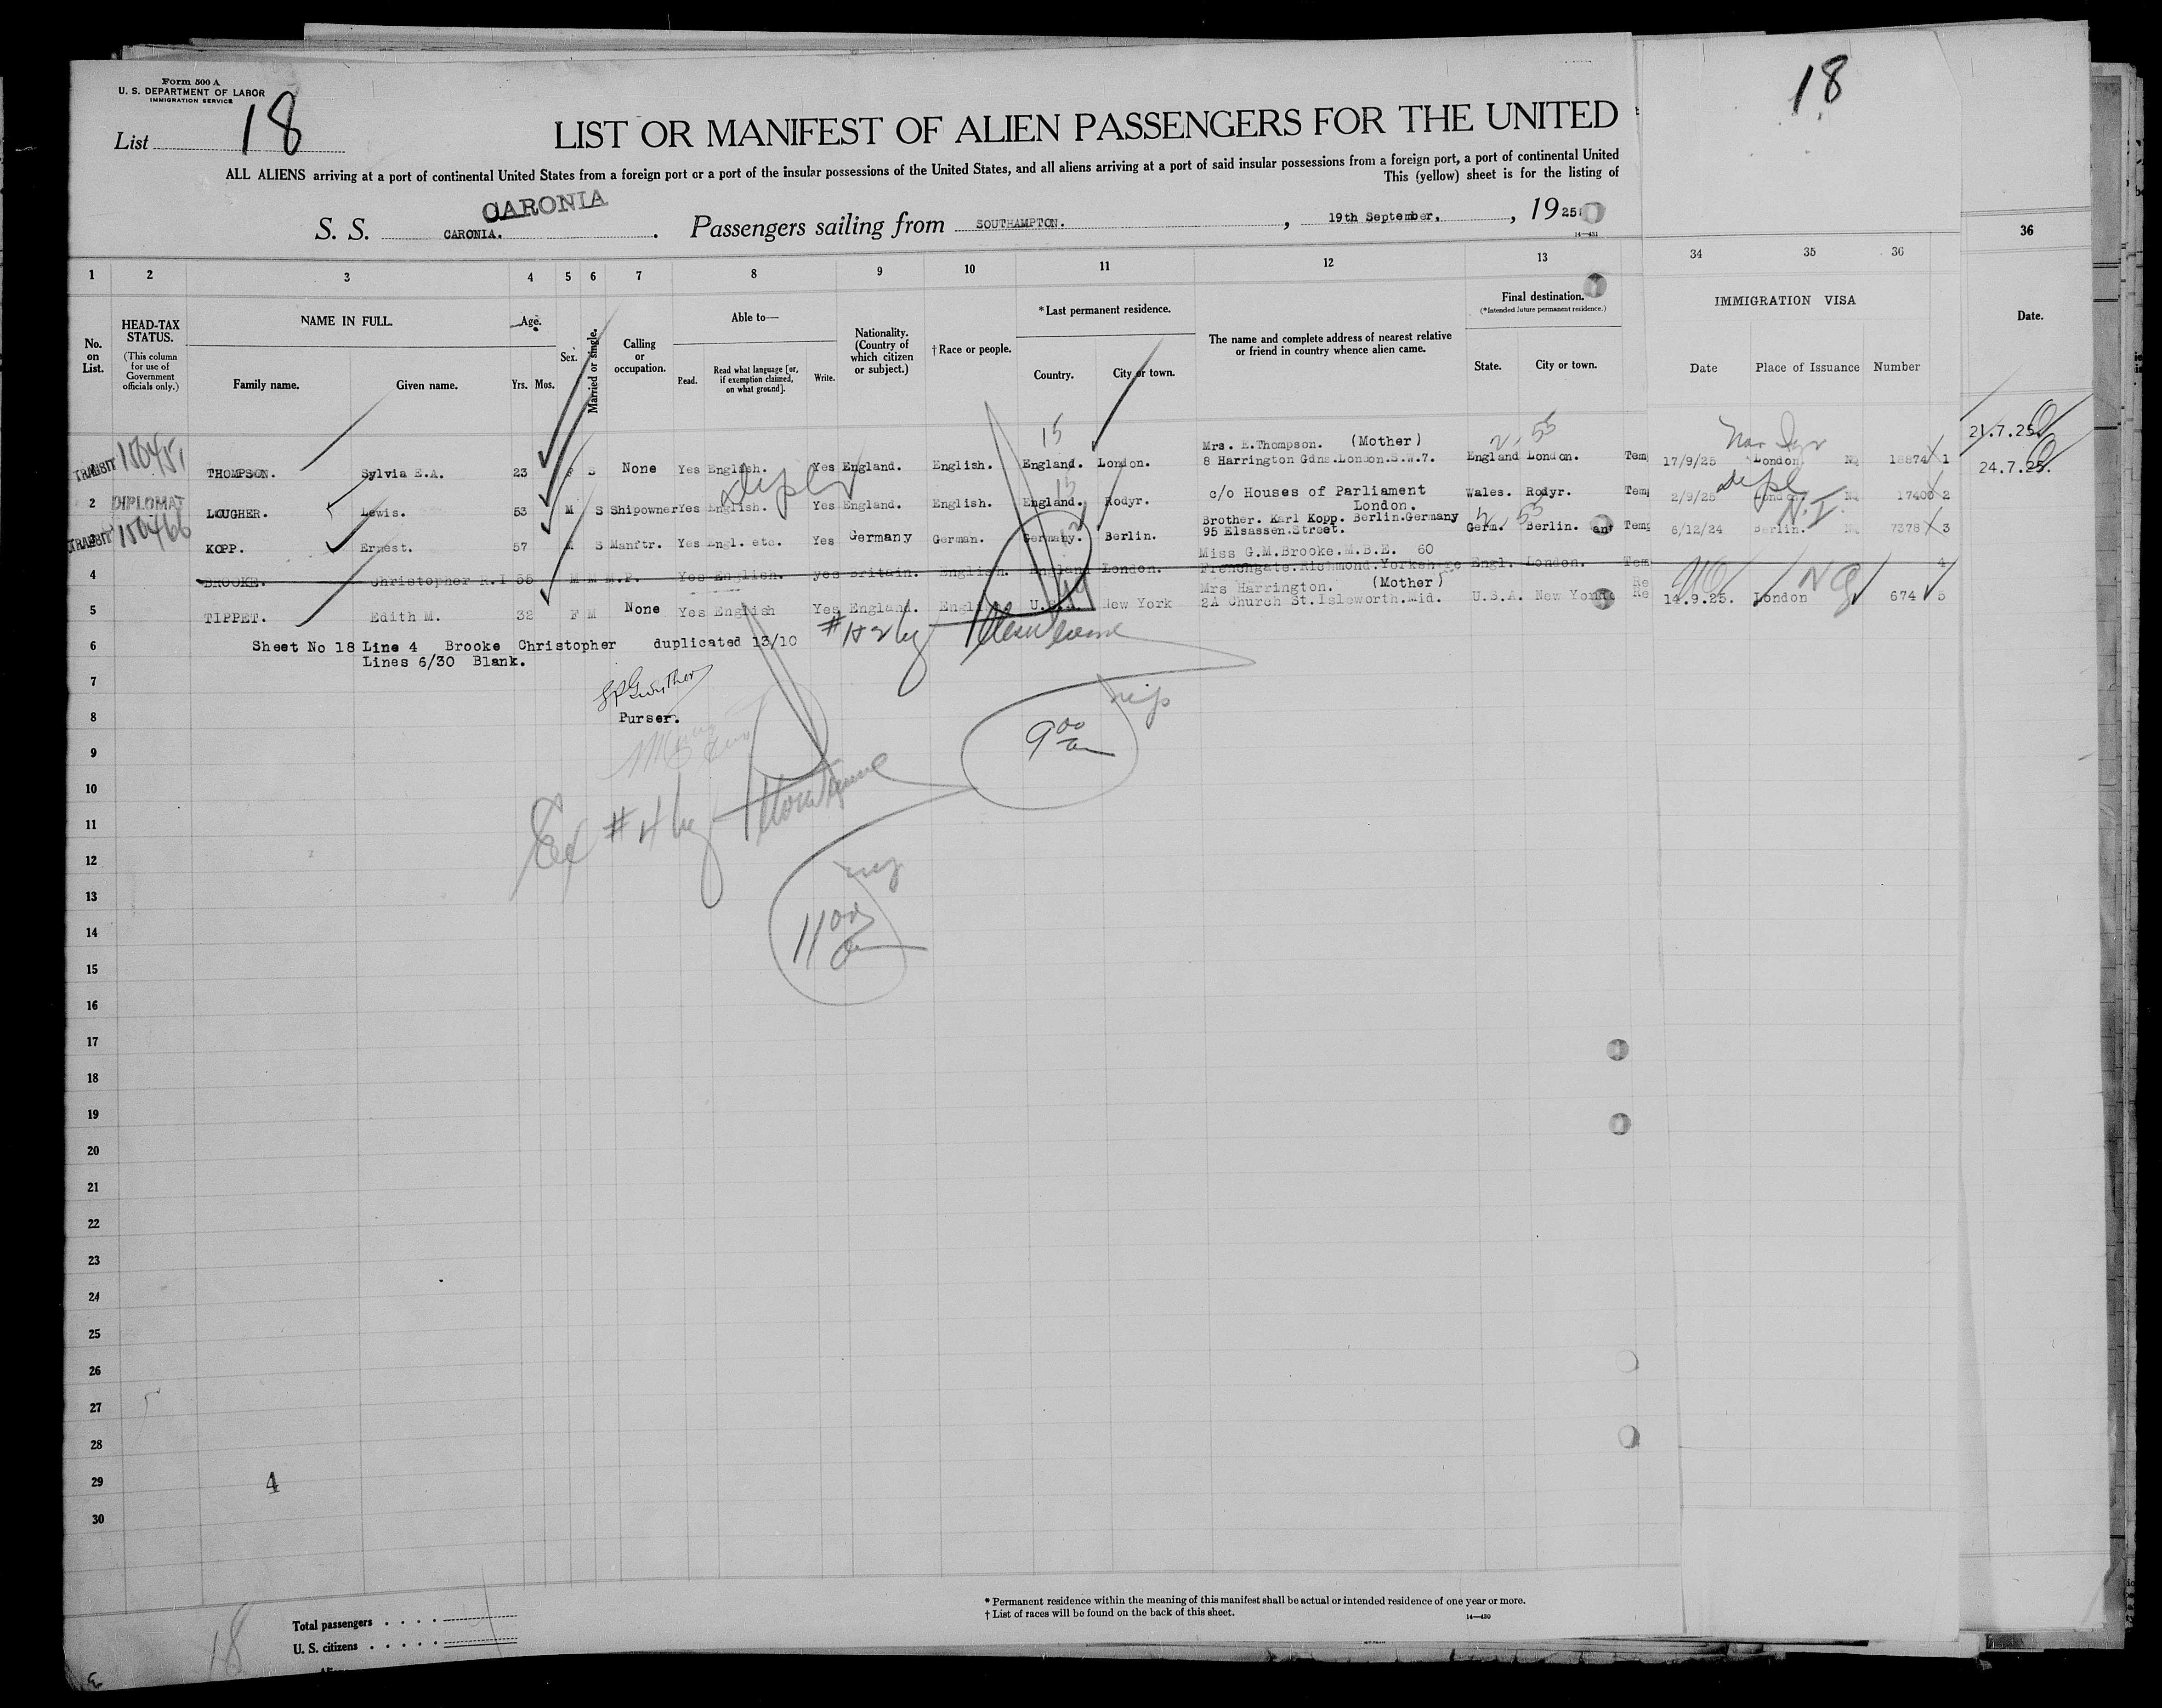 Form 500 A
U. S. DEPARTMENT OF LABOR
IMMIGRATION SERVICE
List 18
18
LIST OR MANIFEST OF ALIEN PASSENGERS FOR THE UNITED
ALL ALIENS arriving at a port of continental United States from a foreign port or a port of the insular possessions of the United States, and all aliens arriving at a port of said insular possessions from a foreign port, a port of continental United
This (yellow) sheet is for the listing of
CARONIA
S. S. CARONIA. Passengers sailing from SOUTHAMPTON. , 19th September. , 1925
14—431
1 2 3 4 5 6 7 8 9 10 11 12 13 34 35 36 36
No. on List.
HEAD-TAX STATUS.
(This column for use of Government officials only.)
NAME IN FULL.
Family name. Given name.
Age.
Yrs. Mos.
Sex.
Married or single.
Calling or occupation.
Able to—
Read. Read what language [or, if exemption claimed, on what ground]. Write.
Nationality. (Country of which citizen or subject.)
† Race or people.
* Last permanent residence.
Country. City or town.
The name and complete address of nearest relative or friend in country whence alien came.
Final destination.
(*Intended future permanent residence.)
State. City or town.
IMMIGRATION VISA
Date Place of Issuance Number
Date.
15 2, 55 21.7.25
TRANSIT THOMPSON. Sylvia E.A. 23 F S None Yes English. Yes England. English. England. London. Mrs. E.Thompson. (Mother) 8 Harrington Gdns.London.S.W.7. England London. Tem 17/9/25 London. NQ 18874 1
24.7.25.
2 DIPLOMAT LOUGHER. Lewis. 53 M S Shipowner Yes English. Yes England. English. England. Rodyr. c/o Houses of Parliament London. Wales. Rodyr. Tem 2/9/25 London. NQ 17400 2
dipl
TRANSIT KOPP. Ernest. 57 M S Manftr. Yes Engl. etc. Yes Germany German. Germany. Berlin. Brother. Karl Kopp. Berlin.Germany 95 Elsassen.Street. Germ. Berlin. Tem 6/12/24 Berlin. NQ 7378 3
4 BROOKE. Christopher R.I 56 M M M.P. Yes English. yes Britain. English. England London. Miss G.M.Brooke.M.B.E. 60 Frenchgate.Richmond.Yorkshere Engl. London. Tem 4
5 TIPPET. Edith M. 32 F M None Yes English Yes England. English U.S.A. New York Mrs Harrington. (Mother) 2A Church St.Isleworth.Mid. U.S.A. New York Re 14.9.25. London NQ 674 5
6 Sheet No 18 Line 4 Brooke Christopher duplicated 13/10
Lines 6/30 Blank.
7
8 Purser.
9 9 00 am
10
11
12
13
14 11 00 am
15
16
17
18
19
20
21
22
23
24
25
26
27
28
29 4
30
Total passengers . . . .
U. S. citizens . . . . .
18
* Permanent residence within the meaning of this manifest shall be actual or intended residence of one year or more.
† List of races will be found on the back of this sheet.
14—430